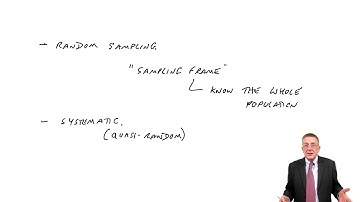 - RANDOM SAMPLING
"SAMPLING FRAME"
KNOW THE WHOLE
POPULATION
- SYSTEMATIC.
(QUASI-RANDOM)